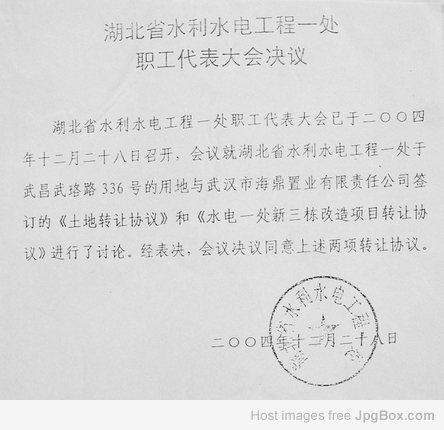 湖北省水利水电工程一处
职工代表大会决议
湖北省水利水电工程一处职工代表大会已于二〇〇四
年十二月二十八日召开，会议就湖北省水利水电工程一处于
武昌武珞路336号的用地与武汉市海鼎置业有限责任公司签
订的《土地转让协议》和《水电一处新三栋改造项目转让协
议》进行了讨论。经表决，会议决议同意上述两项转让协议。
湖北省水利水电工程一处
二〇〇四年十二月二十八日
Host images free JpgBox.com